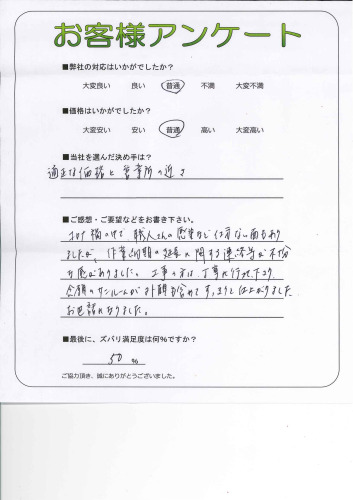 お客様アンケート
■弊社の対応はいかがでしたか？
大変良い 良い 普通 不満 大変不満
■価格はいかがでしたか？
大変安い 安い 普通 高い 大変高い
■当社を選んだ決め手は？
適正な価格と営業所の近さ
■ご感想・ご要望などをお書き下さい。
職人さんの
ましたが、作業納期の延長に関する連絡等が不十分
な感がありました。工事の方は、丁寧に行って下さり
念願のサンルームが外観も含めてすっきりと仕上がりました
お世話になりました。
■最後に、ズバリ満足度は何%ですか？
50 %
ご協力頂き、誠にありがとうございました。